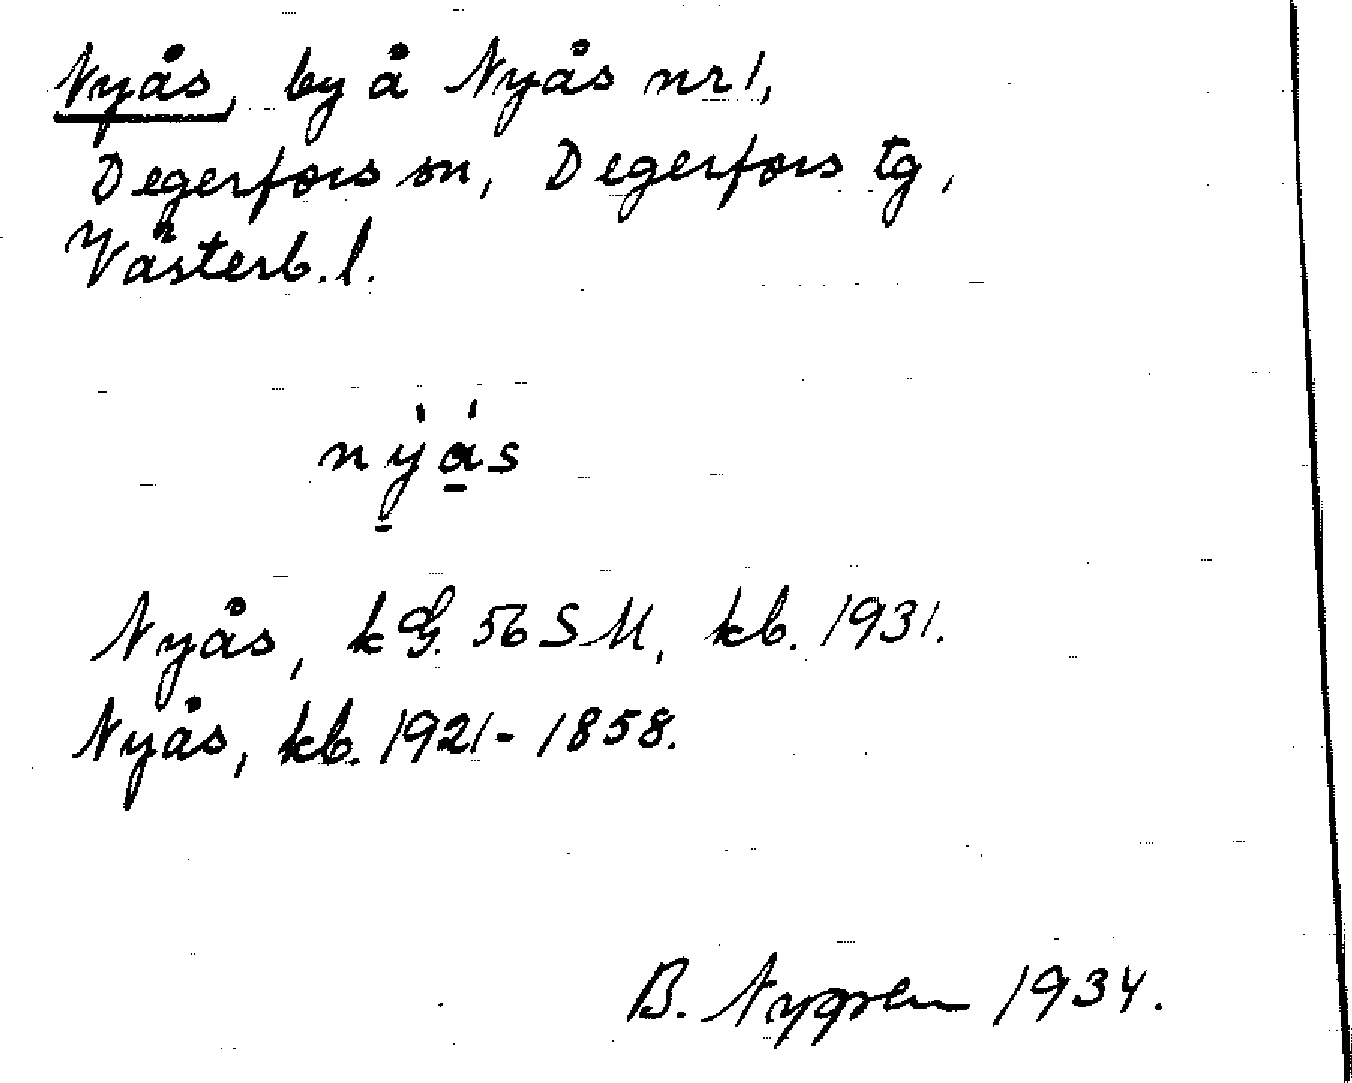 Nyås, by å Nyås nr 1,
Degerfors sn, Degerfors tg,
Västerb. l.
nýás
Nyås, kG. 56 SM, kb. 1931.
Nyås, kb. 1921-1858.
B. Nygren 1934.